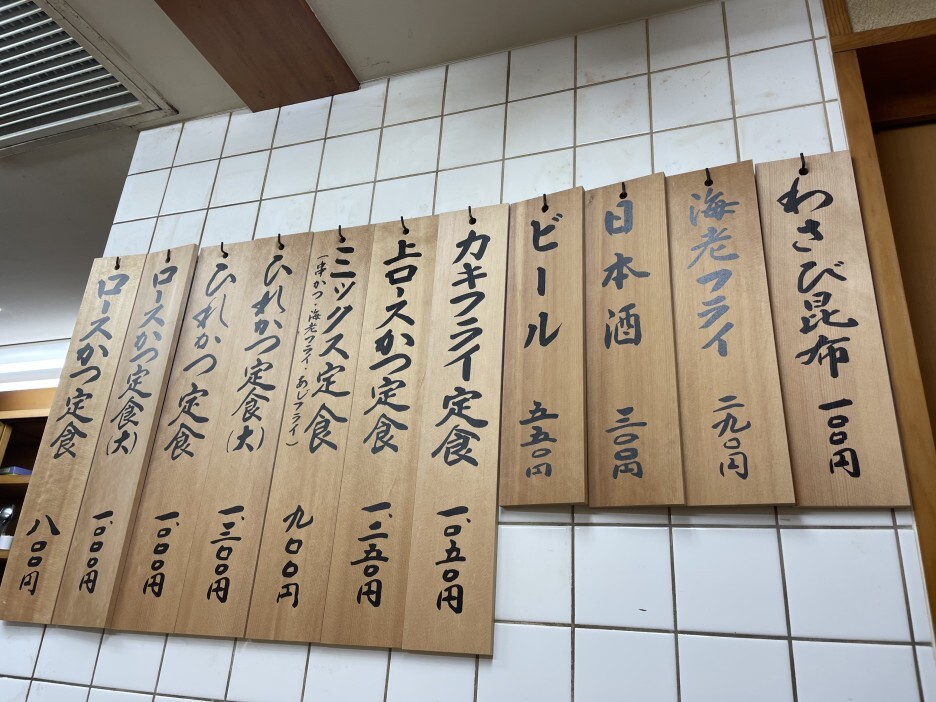 わさび昆布 一〇〇円
海老フライ 二九〇円
日本酒 三〇〇円
ビール 五五〇円
カキフライ定食 一、〇五〇円
上ロースかつ定食 一、二五〇円
ミックス定食 九〇〇円
(串かつ・海老フライ・あじフライ)
ひれかつ定食(大) 一、三〇〇円
ひれかつ定食 一、〇〇〇円
ロースかつ定食(大) 一、〇〇〇円
ロースかつ定食 八〇〇円